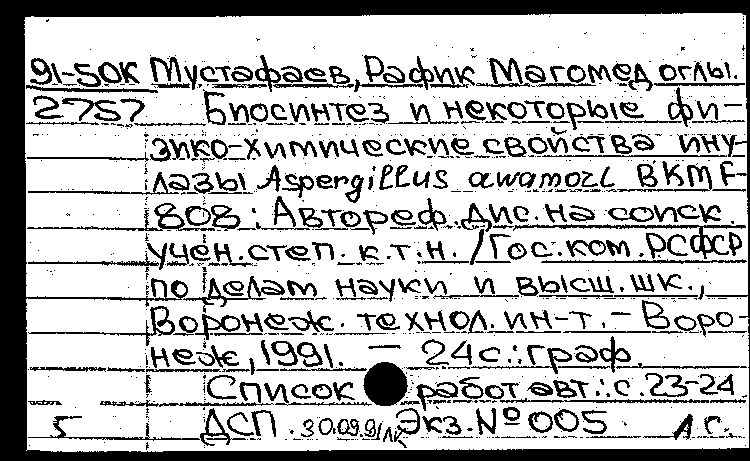 91-50К Мустафаев, Рафик Магомед оглы.
2757 Биосинтез и некоторые фи-
зико-химические свойства ину-
лазы Aspergillus awamori ВКМ F-
808 : Автореф. дис. на соиск.
учен. степ. к. т. н. / Гос. ком. РСФСР
по делам науки и высш. шк.,
Воронеж. технол. ин-т. - Воро-
неж, 1991. - 24 с. : граф.
Список работ авт.: с. 23-24.
5 ДСП. 30.09.91 Экз. № 005. 1 с.